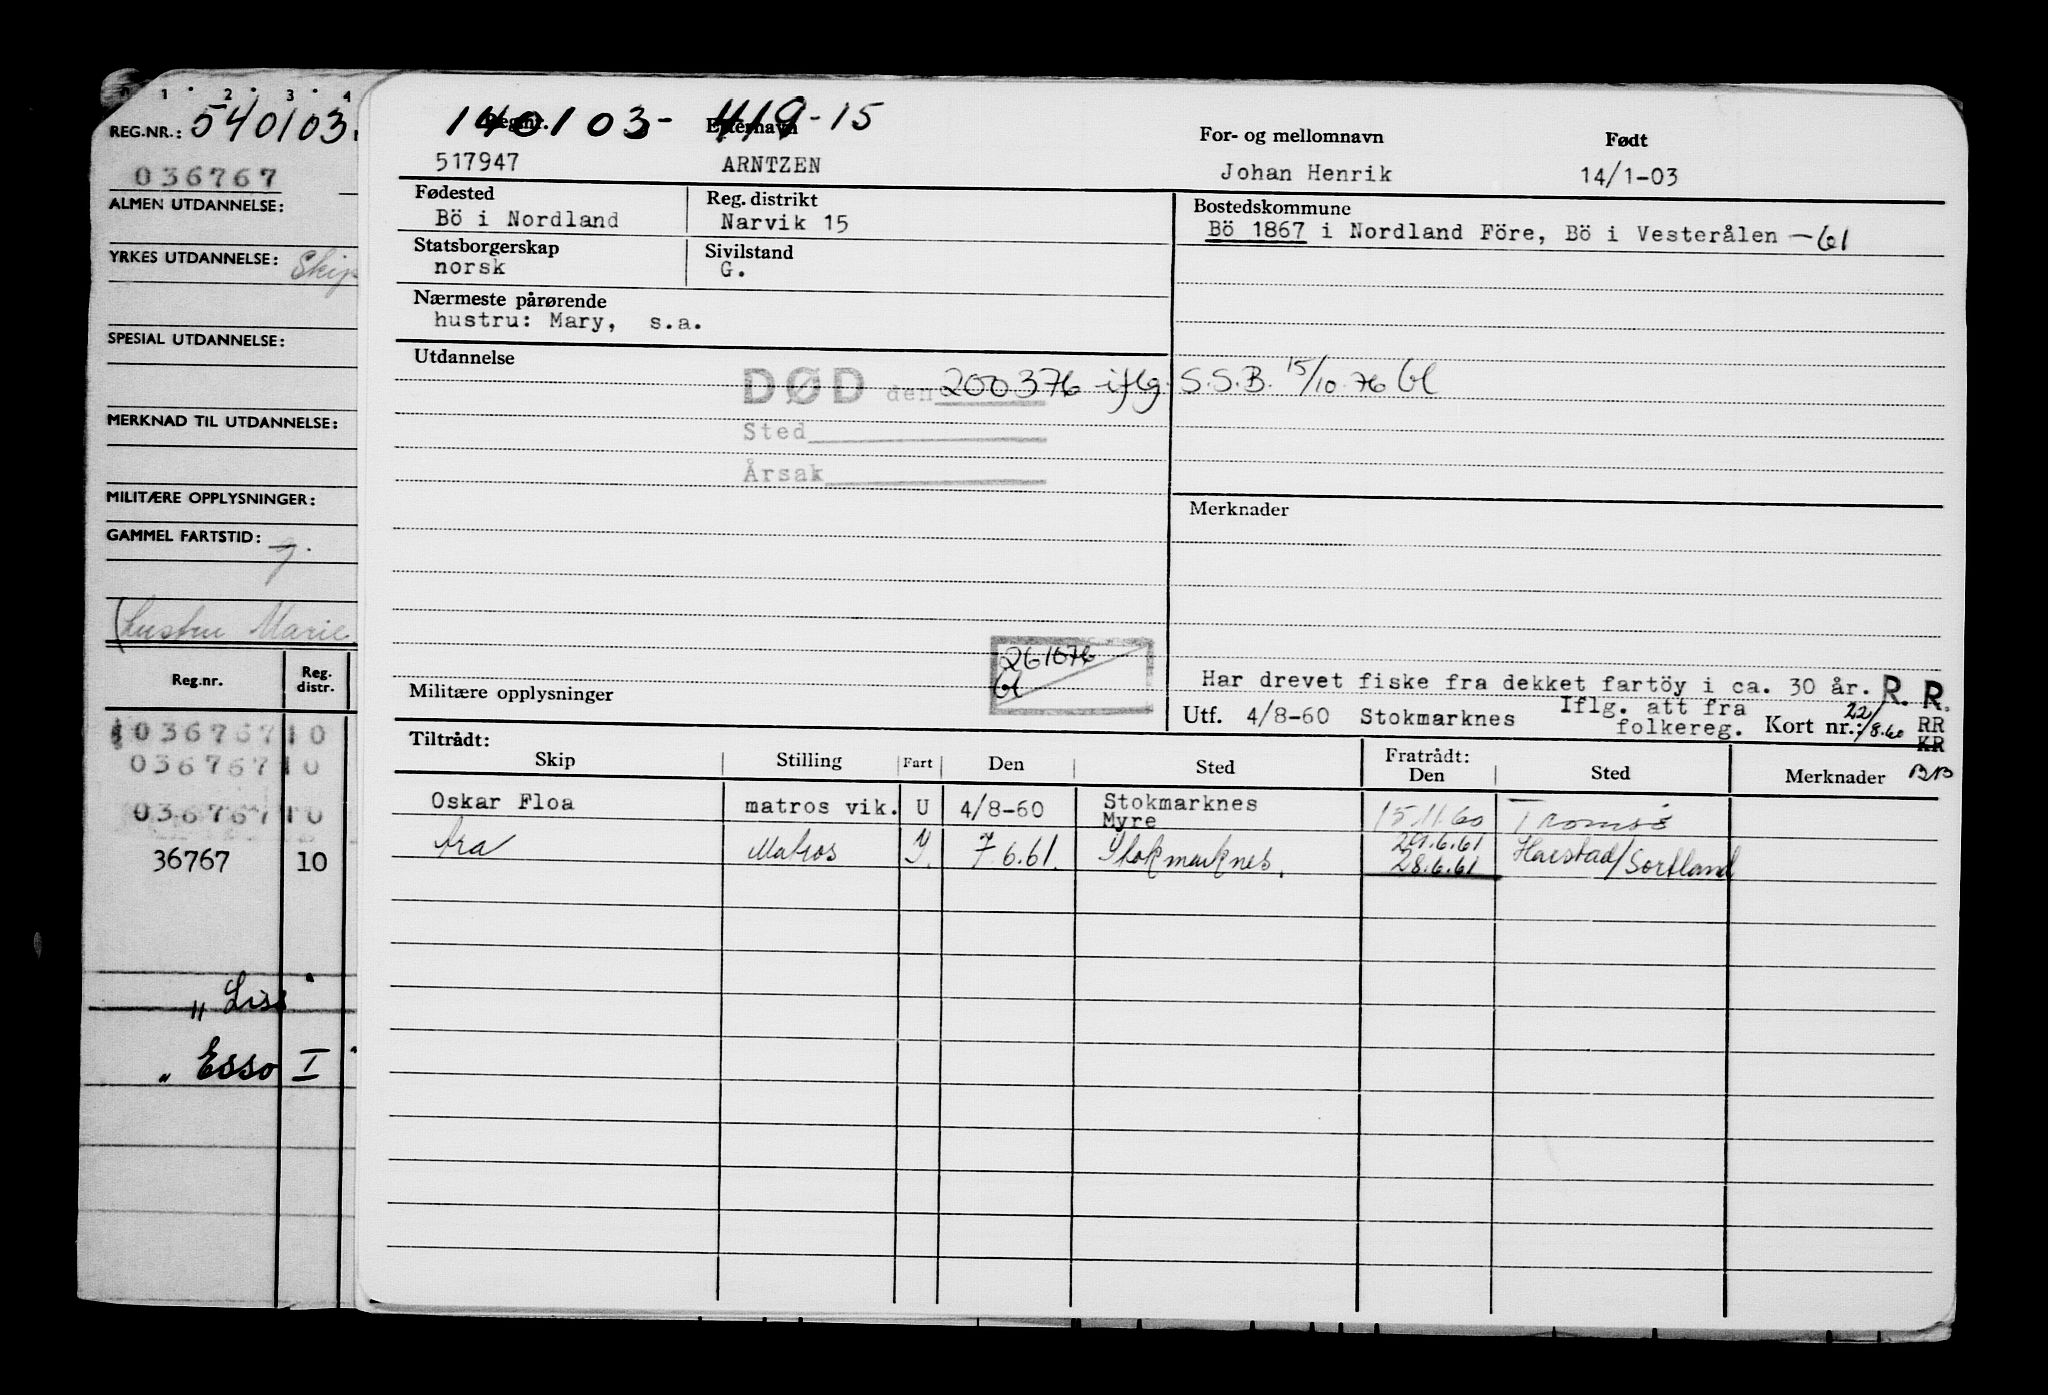 1 2 3 4
REG.NR.: 540103
036767
ALMEN UTDANNELSE:
YRKES UTDANNELSE: Skip
SPESIAL UTDANNELSE:
MERKNAD TIL UTDANNELSE:
MILITÆRE OPPLYSNINGER:
GAMMEL FARTSTID:
(hustru Marie
Reg.nr. Reg. distr.
036767 10
036767 10
036767 10
36767 10
" Lis
" Esso I "
140103- 419-15
Reg.nr. Efternavn For- og mellomnavn Født
517947 ARNTZEN Johan Henrik 14/1-03
Fødested Reg. distrikt Bostedskommune
Bö i Nordland Narvik 15 Bö 1867 i Nordland Före, Bö i Vesterålen -61
Statsborgerskap Sivilstand
norsk G.
Nærmeste pårørende
hustru: Mary, s.a.
Utdannelse
DØD den 200376 iflg. S.S.B. 15/10-76 bl
Sted
Årsak
Merknader
261076
bl
Har drevet fiske fra dekket fartöy i ca. 30 år. R. R.
Militære opplysninger
Utf. 4/8-60 Stokmarknes Iflg. att fra folkereg. Kort nr.: 22/8.60 RR
KR
Tiltrådt: Fratrådt:
Skip Stilling Fart Den Sted Den Sted Merknader BB
Oskar Floa matros vik. U 4/8-60 Stokmarknes 15.11.60 Tromsø
Myre 29.6.61
Matros 7.6.61. Stokmarknes. 28.6.61 Harstad/Sortland